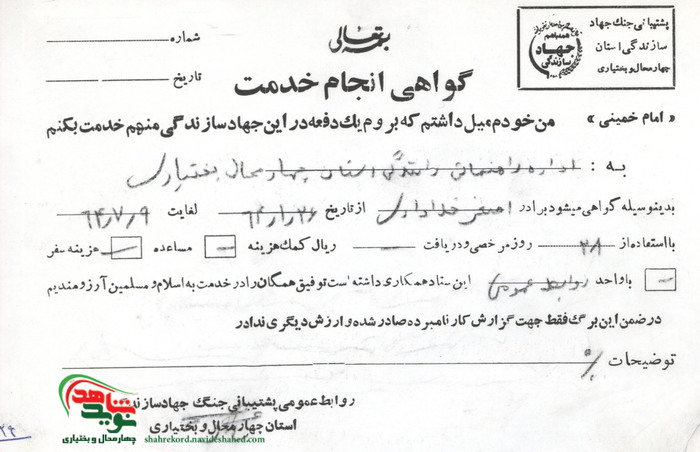 بسمه تعالی
پشتیبانی جنگ جهاد
سازندگی استان
چهارمحال و بختیاری
همه با هم
جهاد
سازندگی
شماره:
تاریخ
گواهی انجام خدمت
«امام خمینی» من خودم میل داشتم که بروم یك دفعه در این جهاد سازندگی منهم خدمت بکنم
به: اداره راهنمائی رانندگی استان چهارمحال بختیاری
بدینوسیله گواهی میشود برادر اصغر خدادادی از تاریخ لغایت ۶۴٫۷٫۹
با استفاده از ۲۸ روز مرخصی و دریافت ریال کمك هزینه مساعده هزینه سفر
با واحد روابط عمومی این ستاد همکاری داشته است توفیق همگان را در خدمت به اسلام و مسلمین آرزومندیم
در ضمن این برگ فقط جهت گزارش کار نامبرده صادر شده و ارزش دیگری ندارد
توضیحات:
روابط عمومی پشتیبانی جنگ جهاد سازندگی
استان چهارمحال و بختیاری
نوید شاهد
چهارمحال و بختیاری
shahrekord.navideshahed.com